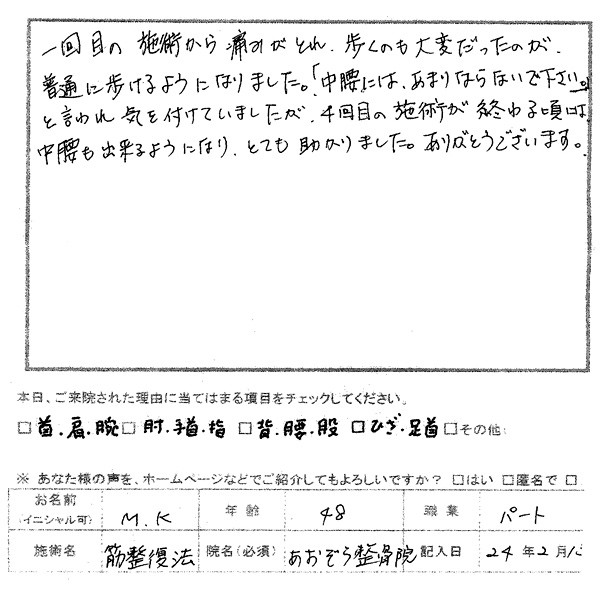 一回目の施術から痛みがとれ、歩くのも大変だったのが、
普通に歩けるようになりました。「中腰には、あまりならないで下さい。」
と言われ気を付けていましたが、4回目の施術が終わる頃には
中腰も出来るようになり、とても助かりました。ありがとうございます。
本日、ご来院された理由に当てはまる項目をチェックしてください。
□首・肩・腕□肘・手首・指 □背・腰・股 □ひざ・足首□その他:
※ あなた様の声を、ホームページなどでご紹介してもよろしいですか? □はい □匿名で □
お名前(イニシャル可) M.K 年齢 48 職業 パート
施術名 筋整復法 院名(必須) あおぞら整骨院 記入日 24年2月